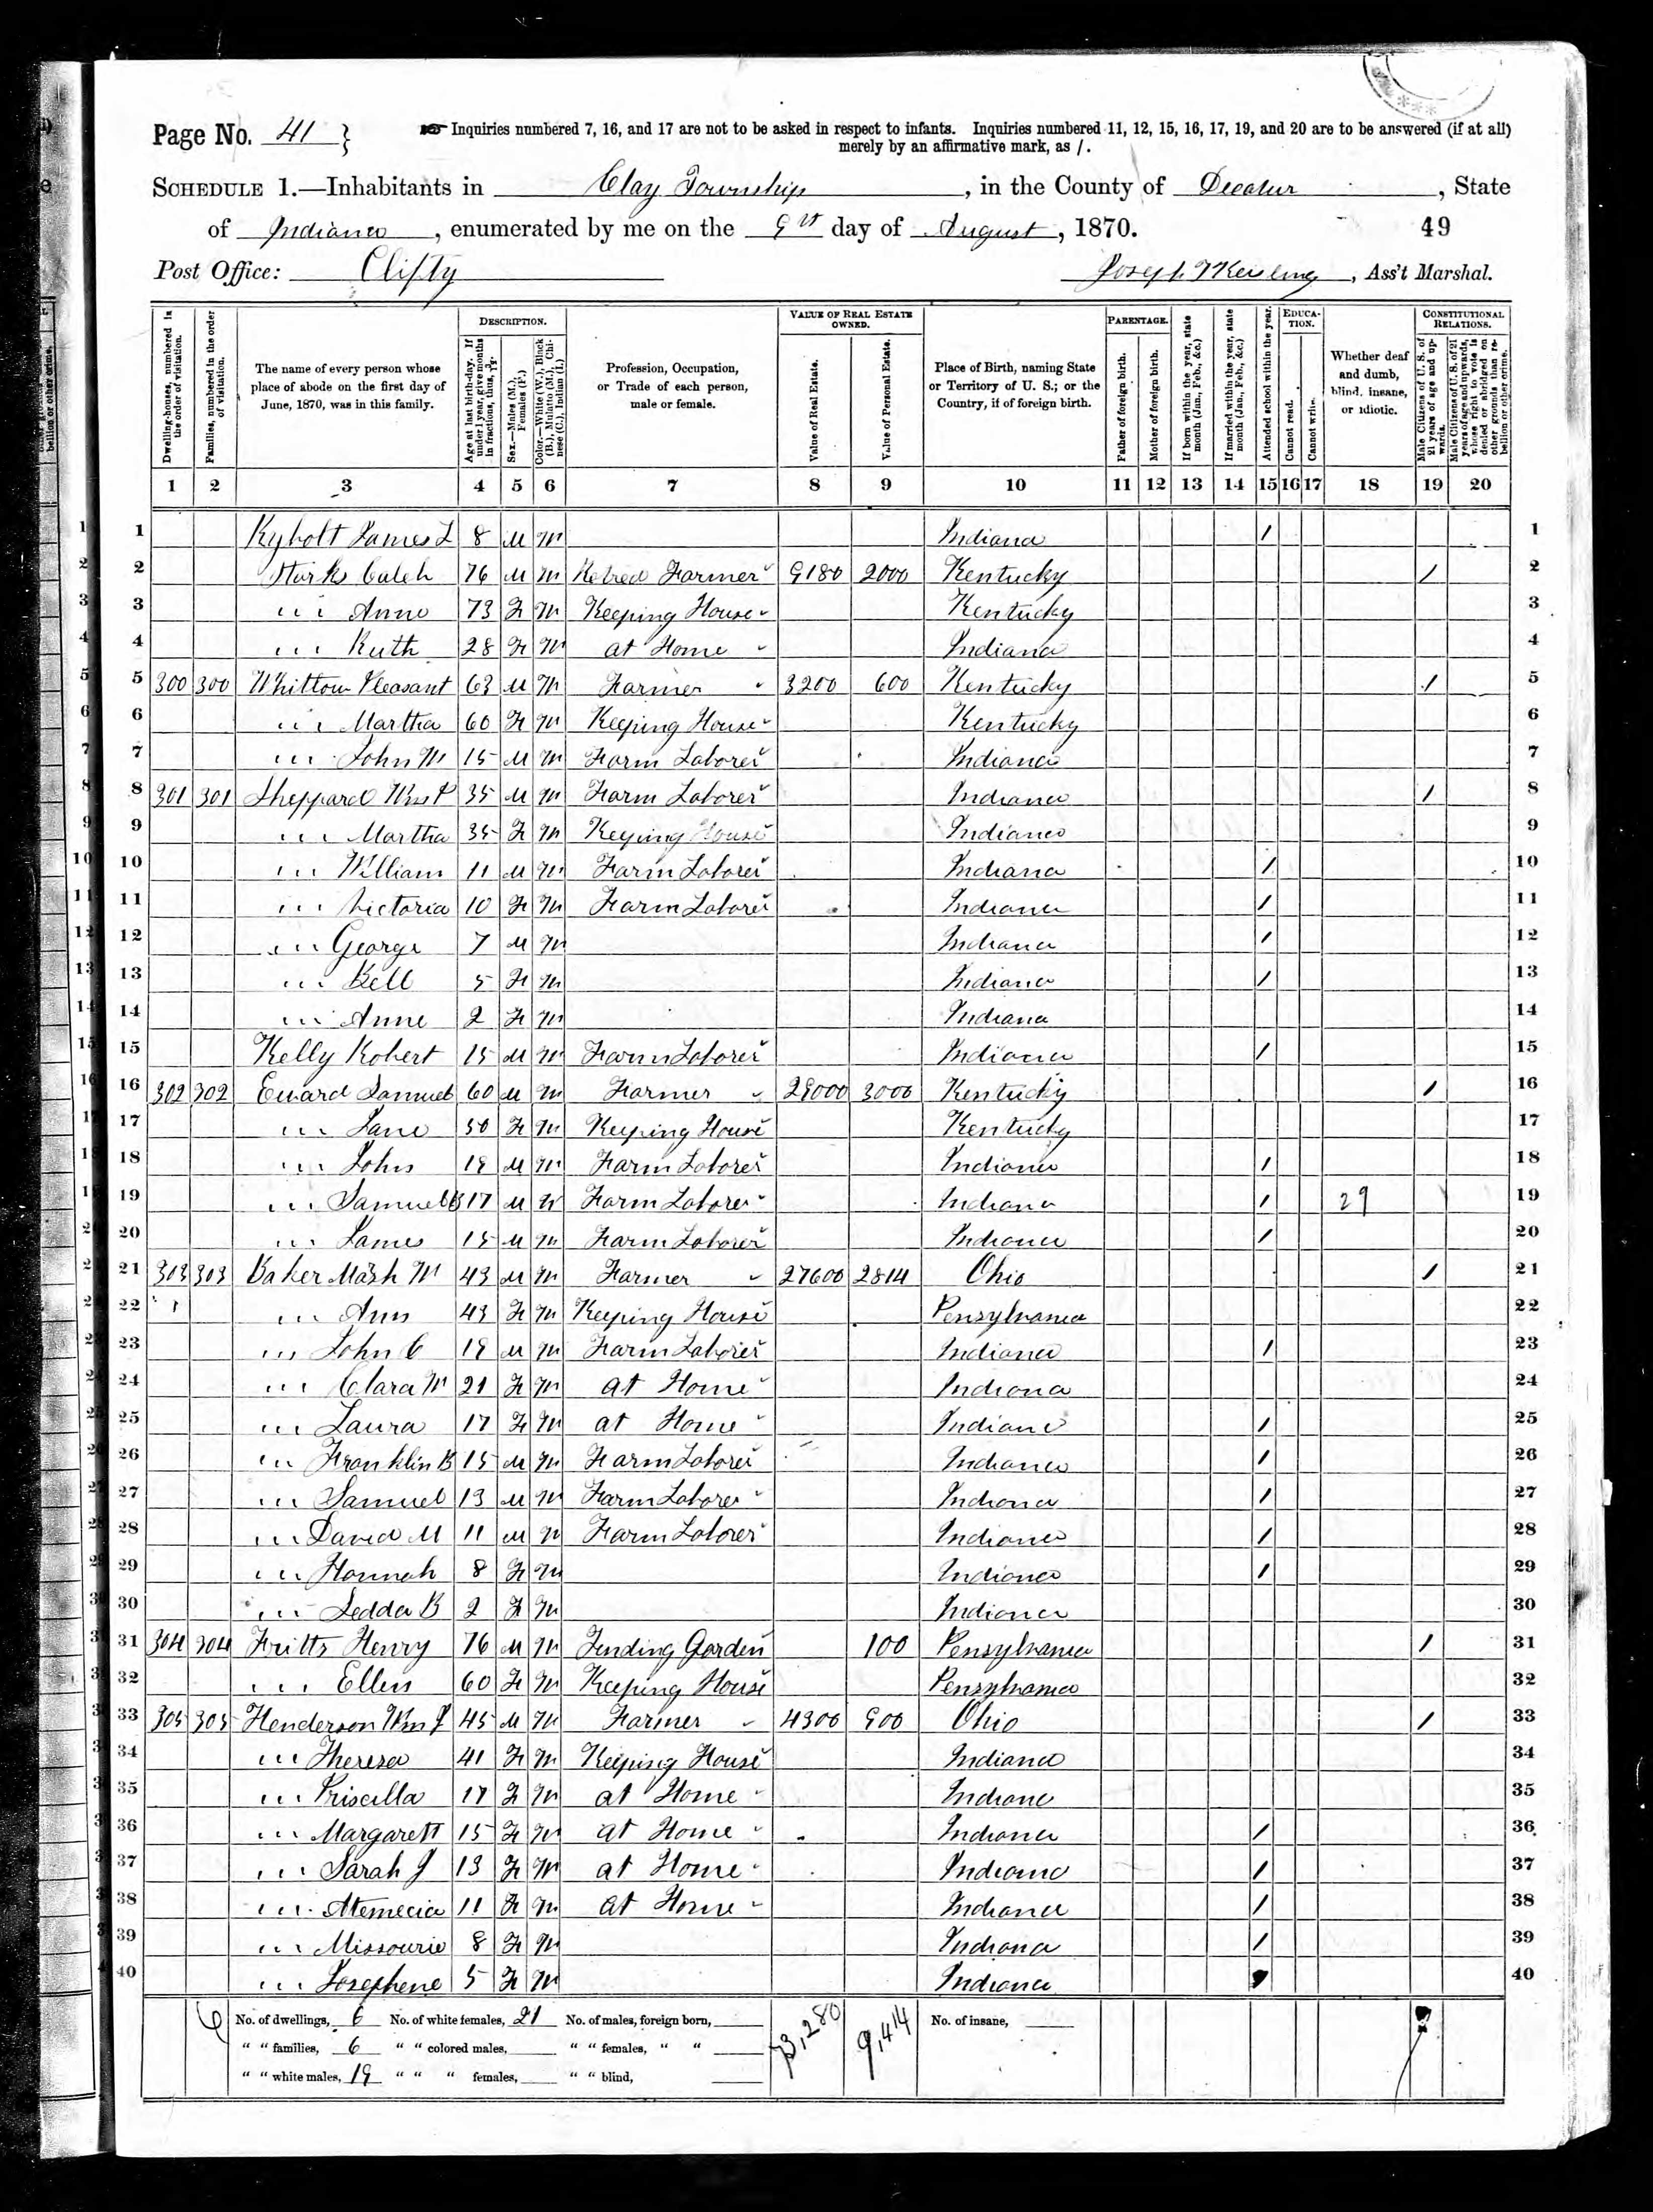 Page No. 41 }
☞ Inquiries numbered 7, 16, and 17 are not to be asked in respect to infants. Inquiries numbered 11, 12, 15, 16, 17, 19, and 20 are to be answered (if at all)
merely by an affirmative mark, as /.
SCHEDULE 1.—Inhabitants in Clay Township, in the County of Decatur, State
of Indiana, enumerated by me on the day of August, 1870. 49
Post Office: Clifty Joseph, Ass't Marshal.
Dwelling-houses, numbered in the order of visitation.
Families, numbered in the order of visitation.
The name of every person whose place of abode on the first day of June, 1870, was in this family.
DESCRIPTION.
Age at last birth-day. If under 1 year, give months in fractions, thus, 3/12.
Sex.—Males (M.), Females (F.)
Color.—White (W.), Black (B.), Mulatto (M.), Chinese (C.), Indian (I.)
Profession, Occupation, or Trade of each person, male or female.
VALUE OF REAL ESTATE OWNED.
Value of Real Estate.
Value of Personal Estate.
Place of Birth, naming State or Territory of U. S.; or the Country, if of foreign birth.
PARENTAGE.
Father of foreign birth.
Mother of foreign birth.
If born within the year, state month (Jan., Feb., &c.)
If married within the year, state month (Jan., Feb., &c.)
Attended school within the year.
EDUCATION.
Cannot read.
Cannot write.
Whether deaf and dumb, blind, insane, or idiotic.
CONSTITUTIONAL RELATIONS.
Male Citizens of U. S. of 21 years of age and upwards.
Male Citizens of U. S. of 21 years of age and upwards, whose right to vote is denied or abridged on other grounds than rebellion or other crime.
1 2 3 4 5 6 7 8 9 10 11 12 13 14 15 16 17 18 19 20
1 James L 8 M W Indiana / 1
2 Caleb 76 M W Retired Farmer 9180 2000 Kentucky / 2
3 " Anne 73 F W Keeping House Kentucky 3
4 " Ruth 28 F W at Home Indiana 4
5 300 300 Pleasant 63 M W Farmer 3200 600 Kentucky / 5
6 " Martha 60 F W Keeping House Kentucky 6
7 " John W 15 M W Farm Laborer Indiana 7
8 301 301 Sheppard Wm P 35 M W Farm Laborer Indiana / 8
9 " Martha 35 F W Keeping House Indiana 9
10 " William 11 M W Farm Laborer Indiana / 10
11 " Victoria 10 F W Farm Laborer Indiana / 11
12 " George 7 M W Indiana / 12
13 " Bell 5 F W Indiana / 13
14 " Anne 2 F W Indiana 14
15 Kelly Robert 15 M W Farm Laborer Indiana / 15
16 302 302 Eward Samuel 60 M W Farmer 29000 3000 Kentucky / 16
17 " Jane 50 F W Keeping House Kentucky 17
18 " John 19 M W Farm Laborer Indiana / 18
19 " Samuel B 17 M W Farm Laborer Indiana / 29 19
20 " James 15 M W Farm Laborer Indiana / 20
21 303 303 Baker W 43 M W Farmer 27600 2814 Ohio / 21
22 " Ann 43 F W Keeping House Pensylvania 22
23 " John C 19 M W Farm Laborer Indiana / 23
24 " Clara W 21 F W at Home Indiana 24
25 " Laura 17 F W at Home Indiana / 25
26 " Franklin B 15 M W Farm Laborer Indiana / 26
27 " Samuel 13 M W Farm Laborer Indiana / 27
28 " David M 11 M W Farm Laborer Indiana / 28
29 " Hannah 8 F W Indiana / 29
30 " Ledda B 2 F W Indiana 30
31 304 304 Fritts Henry 76 M W Tending Garden 100 Pensylvania / 31
32 " Ellen 60 F W Keeping House Pensylvania 32
33 305 305 Henderson Wm J 45 M W Farmer 4300 900 Ohio / 33
34 " Theresa 41 F W Keeping House Indiana 34
35 " Priscilla 17 F W at Home Indiana 35
36 " Margarett 15 F W at Home Indiana / 36
37 " Sarah J 13 F W at Home Indiana / 37
38 " Atemecia 11 F W at Home Indiana / 38
39 " Missourie 8 F W Indiana / 39
40 " Josephene 5 F W Indiana 40
No. of dwellings, 6 No. of white females, 21 No. of males, foreign born, 73,280 9,414 No. of insane,
" " families, 6 " " colored males, " " females, " "
" " white males, 19 " " " females, " " blind,